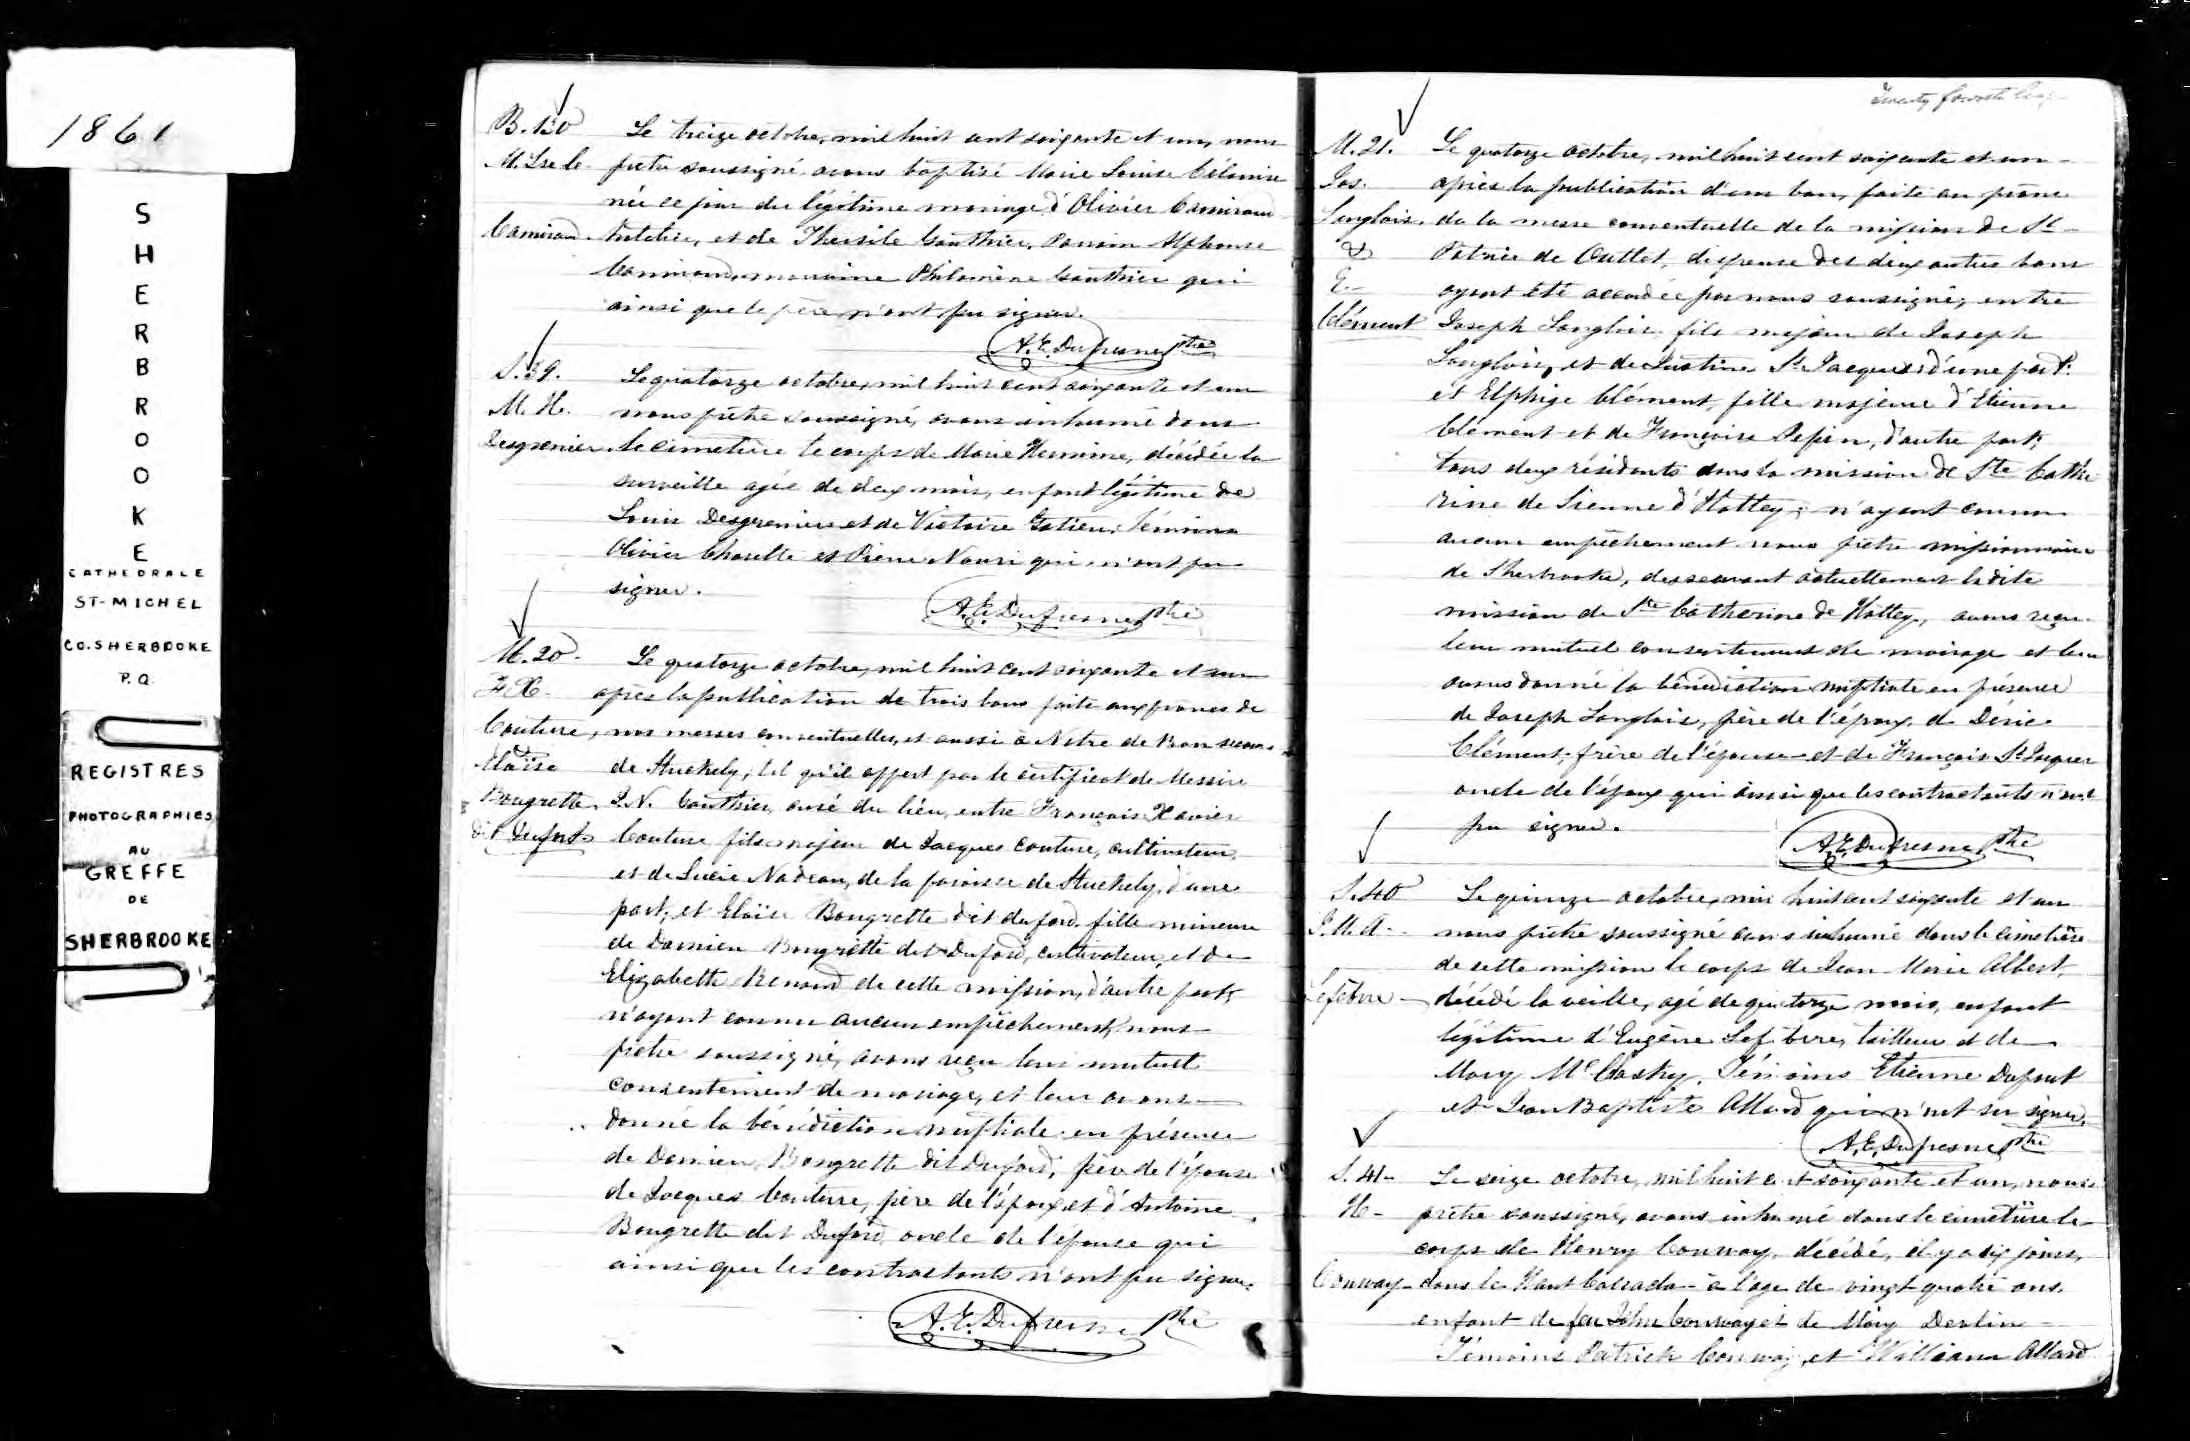 1861
SHERBROOKE
CATHEDRALE
ST-MICHEL
CO. SHERBROOKE
P.Q.
REGISTRES
PHOTOGRAPHIES
AU
GREFFE
DE
SHERBROOKE
B.130
M. Lse C.
Camirand
Le treize octobre, mil huit cent soixante et un, nous
prêtre soussigné avons baptisé Marie Louise
née ce jour du légitime mariage d'Olivier Camirand
et de Thersile Gauthier, Parrain Alphonse
Camirand, marraine Philomène Gauthier qui
ainsi que le père n'ont pu signer.
A.E. Dufresne Ptre
S.39.
M. H.
Desgrenier
Le quatorze octobre, mil huit cent soixante et un
nous prêtre soussigné, avons inhumé dans
le cimetière le corps de Marie Hermine, décédée la
surveille agée de deux mois, enfant légitime de
Louis Desgreniers et de Victoire Gatien; témoins
Olivier Charette et Pierre Nauri qui n'ont pu
signer.
A.E. Dufresne Ptre
M.20.
F.X.
Couture,
Eloïse
Bougrette
dit Dufort
Le quatorze octobre, mil huit cent soixante et un
après la publication de trois bans faite aux prônes de
nos messes conventuelles, et aussi à Notre de Bon secours
de Stuckely, tel qu'il appert par le certificat de Messire
J.N. Gauthier, curé du lieu, entre François Xavier
Couture fils majeur de Jacques Couture, cultivateur
et de Lucie Nadeau, de la paroisse de Stuckely, d'une
part, et Eloïse Bougrette dit duford fille mineure
de Damien Bougrette dit Duford, cultivateur, et de
Elizabeth Renaud de cette mission, d'autre part,
n'ayant connu aucun empêchement, nous
prêtre soussigné, avons reçu leur mutuel
consentement de mariage, et leur avons
donné la bénédiction nuptiale en présence
de Damien Bougrette dit Duford, père de l'épouse
de Jacques Couture, père de l'époux, et d'Antoine
Bougrette dit Duford oncle de l'épouse qui
ainsi que les contractants n'ont pu signer.
A.E. Dufresne Ptre
Twenty fourth
M.21.
Jos.
Langlois.
&
E.
Clément
Le quatorze octobre, mil huit cent soixante et un
après la publication d'un ban, faite au prone
de la messe conventuelle de la mission de St
Patrice de Outlet, dispense des deux autres bans
ayant été accordée par nous soussigné, entre
Joseph Langlois fils majeur de Joseph
Langlois, et de Justine St Jacques d'une part
et Elphige Clément, fille majeure d'Etienne
Clément et de Françoise Pepin, d'autre part,
tous deux résidents dans la mission de Ste Cathe
rine de Sienne d'Hatley; n'ayant connu
aucun empêchement nous prêtre missionnaire
de Sherbrooke, desservant actuellement ladite
mission de Ste Catherine de Hatley, avons reçu
leur mutuel consentement de mariage et leur
avons donné la bénédiction nuptiale en présence
de Joseph Langlois, père de l'époux, de Désiré
Clément, frère de l'épouse et de François St Jacques
oncle de l'époux qui ainsi que les contractants n'ont
pu signer.
A.E. Dufresne Ptre
S.40
J.M.A.
Lefebvre
Le quinze octobre, mil huit cent soixante et un
nous prêtre soussigné avons inhumé dans le cimetière
de cette mission le corps de Jean Marie Albert,
décédé la veille, agé de quatorze mois, enfant
légitime d'Eugène Lefebvre, tailleur et de
Mary McClosky. Témoins Etienne Dufort
et Jean Baptiste Allard qui n'ont su signer.
A.E. Dufresne Ptre
S.41
H
Conway
Le seize octobre, mil huit cent soixante et un, nous
prêtre soussigné, avons inhumé dans le cimetière le
corps de Henry Conway, décédé, il y a dix jours,
dans le Haut Canada à l'age de vingt quatre ans.
enfant de feu John Conway et de Mary Devlin
Témoins Patrick Conway, et William Allard